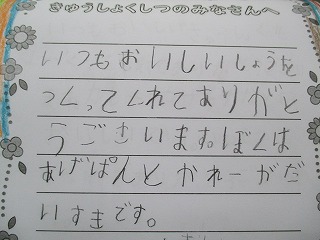 きゅうしょくしつのみなさんへ
いつもおいしいしょうを
つくってくれてありがと
うございます。ぼくは
あげぱんとかれーがだ
いすきです。